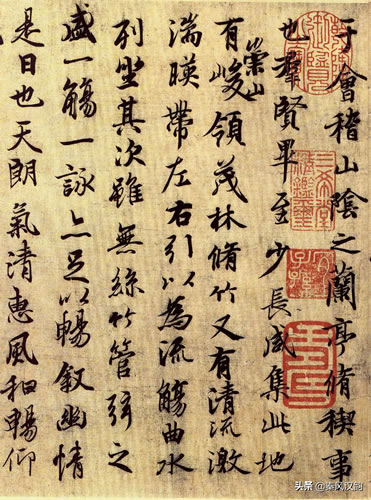 于會稽山陰之蘭亭脩稧事
也羣賢畢至少長咸集此地
有崇山峻領茂林脩竹又有清流激
湍暎帶左右引以為流觴曲水
列坐其次雖無絲竹管弦之
盛一觴一詠亦足以暢敘幽情
是日也天朗氣清惠風和暢仰
三希堂精鑒璽
宜子孫